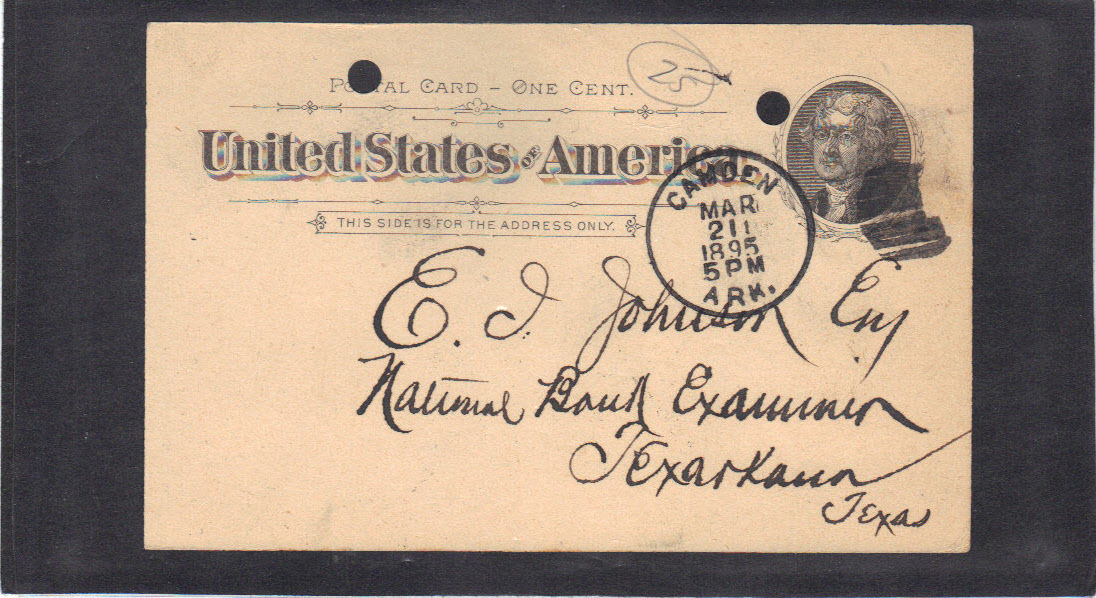 25
POSTAL CARD – ONE CENT.
United States OF America
THIS SIDE IS FOR THE ADDRESS ONLY.
CAMDEN
MAR
21
1895
5 PM
ARK.
E. J. Johnson Esq
National Bank Examiner
Texarkana
Texas